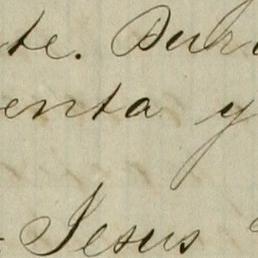 te. Dur
enta y
Jesus